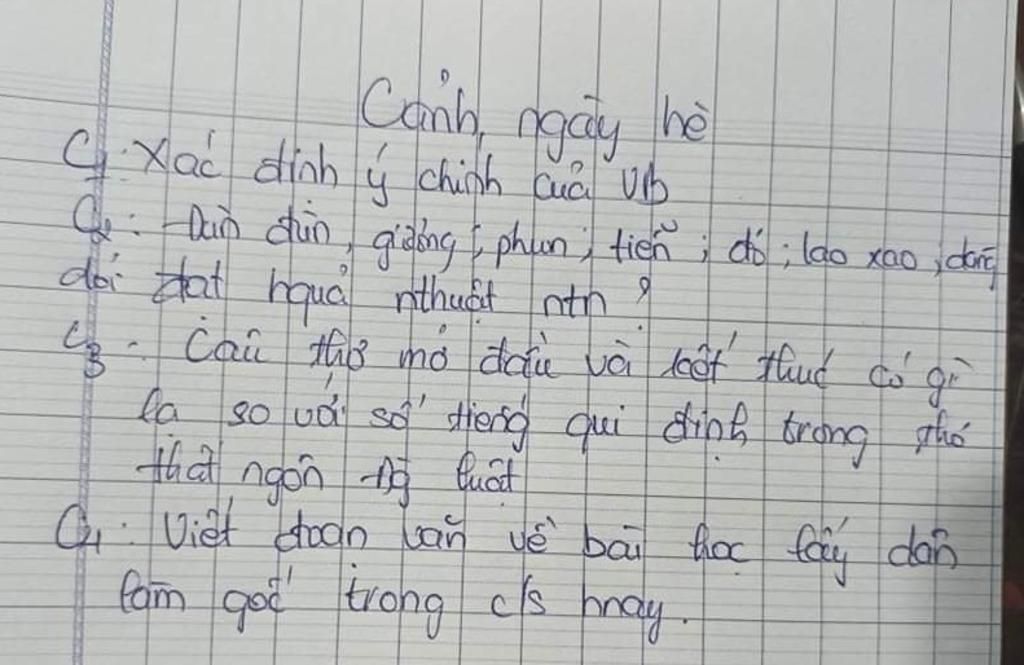 Cảnh ngày hè
C1: Xác định ý chính của VB
C2: Đùn đùn, giương; phun; tiễn; đỏ; lao xao, dắng
dỏi đạt hquả nthuật ntn?
C3: Câu thơ mở đầu và kết thúc có gì
lạ so với số tiếng qui định trong thơ
thất ngôn Đg luật
C4: Viết đoạn văn về bài học lấy dân
làm gốc trong c/s hnay.